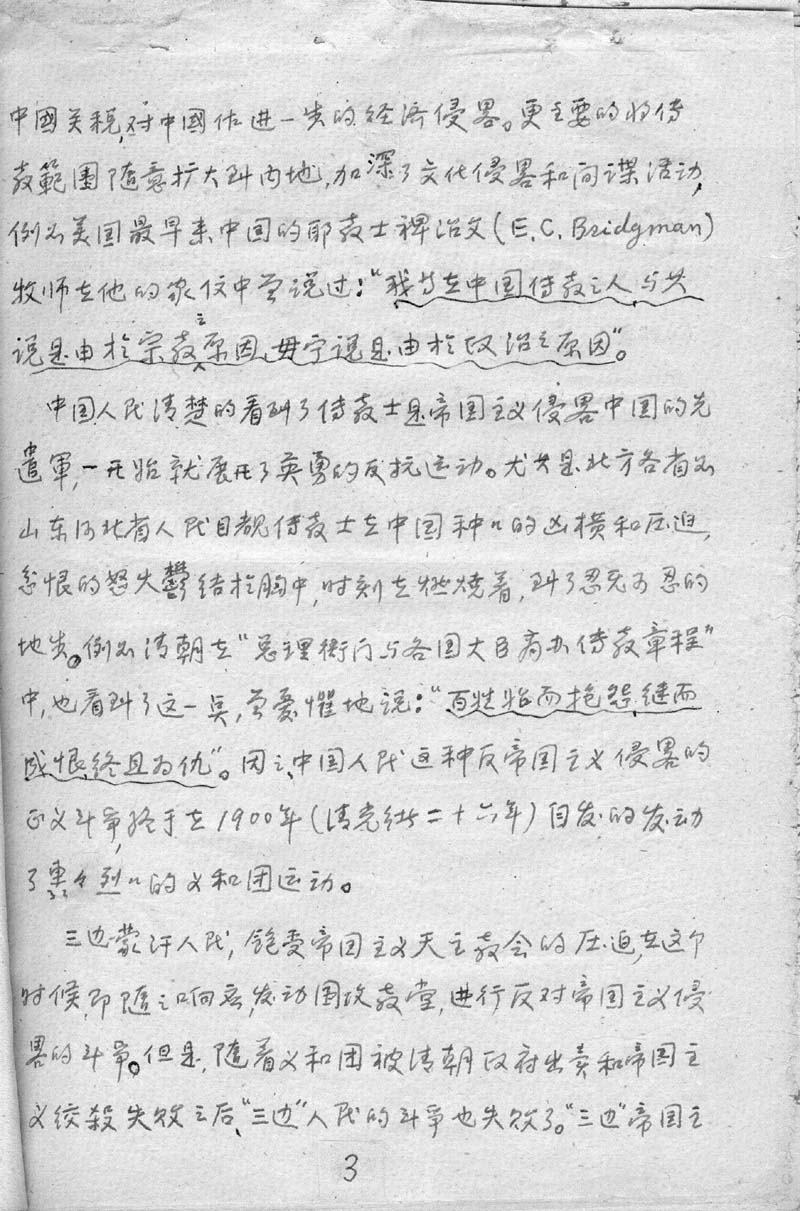 中國关税,对中國作进一步的经济侵畧。更主要的将传
教範围随意扩大到内地,加深了文化侵畧和间谍活动,
例如美国最早来中国的耶教士裨治文(E.C.Bridgman)
牧师在他的家信中曾说过:“我等在中国传教之人,与其
说是由於宗教之原因,毋宁说是由於政治之原因”。
中国人民清楚的看到了传教士是帝国主义侵畧中国的先
遣軍,一开始就展开了英勇的反抗运动。尤其是北方各省如
山东河北省人民目覩传教士在中国种〃的凶横和压迫,
忿恨的怒火鬱结於胸中,时刻在燃烧着,到了忍无可忍的
地步。例如清朝在“总理衙门与各国大臣商办传教章程”
中,也看到了这一点,曾憂惧地说:“百姓始而抱怨,继而
成恨,终且为仇”。因之,中国人民这种反帝国主义侵畧的
正义斗争,终于在1900年(清光绪二十六年)自发的发动
了轰々烈〃的义和团运动。
三边蒙汗人民,饱受帝国主义天主教会的压迫,在这个
时候,即随之响应,发动围攻教堂,进行反对帝国主义侵
畧的斗争。但是,随着义和团被清朝政府出卖和帝国主
义绞殺失败之后,“三边”人民的斗争也失败了。“三边”帝国主
3